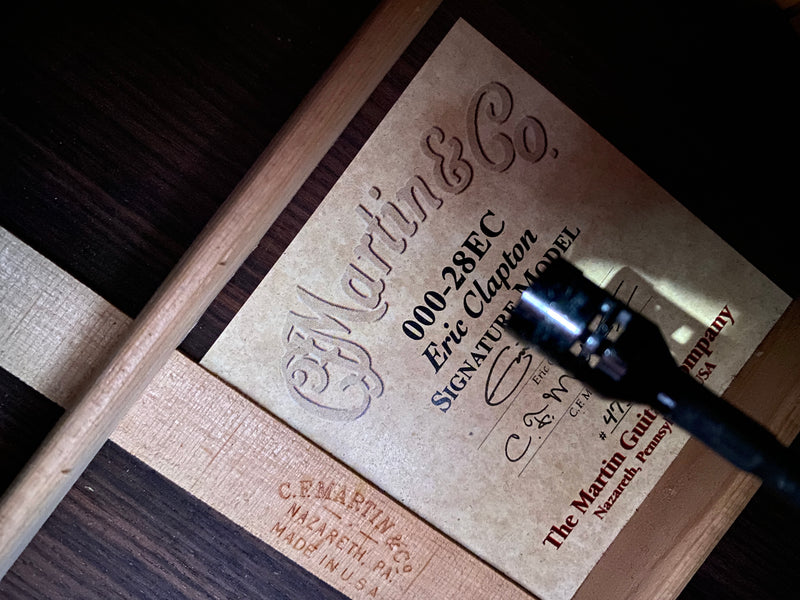 C.F. Martin & Co.
000-28EC
Eric Clapton
SIGNATURE MODEL
Eric
C. F. M
C.F. M
# 47
The Martin Guitar Company
Nazareth, Pennsy USA
C.F. MARTIN & Co
NAZARETH, PA.
MADE IN U S A